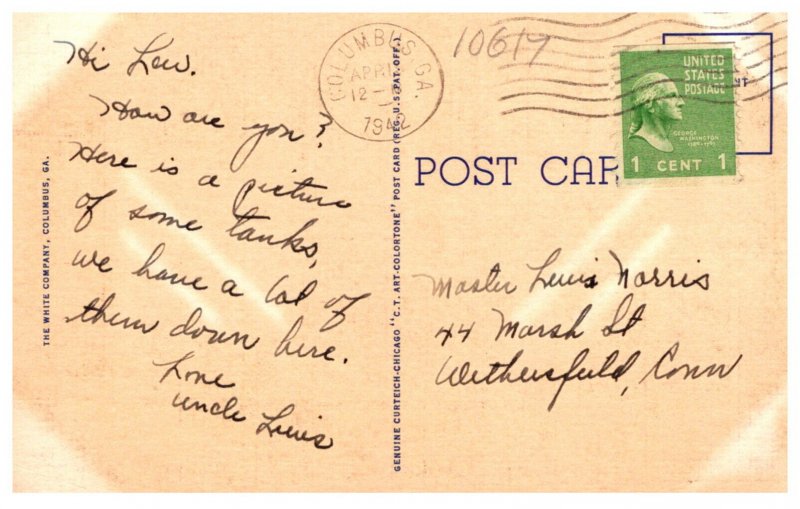 Hi Lew.
How are you?
Here is a picture
of some tanks,
we have a lot of
them down here.
Love
Uncle Lewis
THE WHITE COMPANY, COLUMBUS, GA.
GENUINE CURTEICH-CHICAGO "C.T. ART-COLORTONE" POST CARD (REG. U.S. PAT. OFF.)
COLUMBUS, GA.
APR
12
1942
10617
UNITED
STATES
POSTAGE
GEORGE
WASHINGTON
1789-1797
1 CENT 1
POST CAR
Master Lewis Norris
44 Marsh St
Wethersfield, Conn